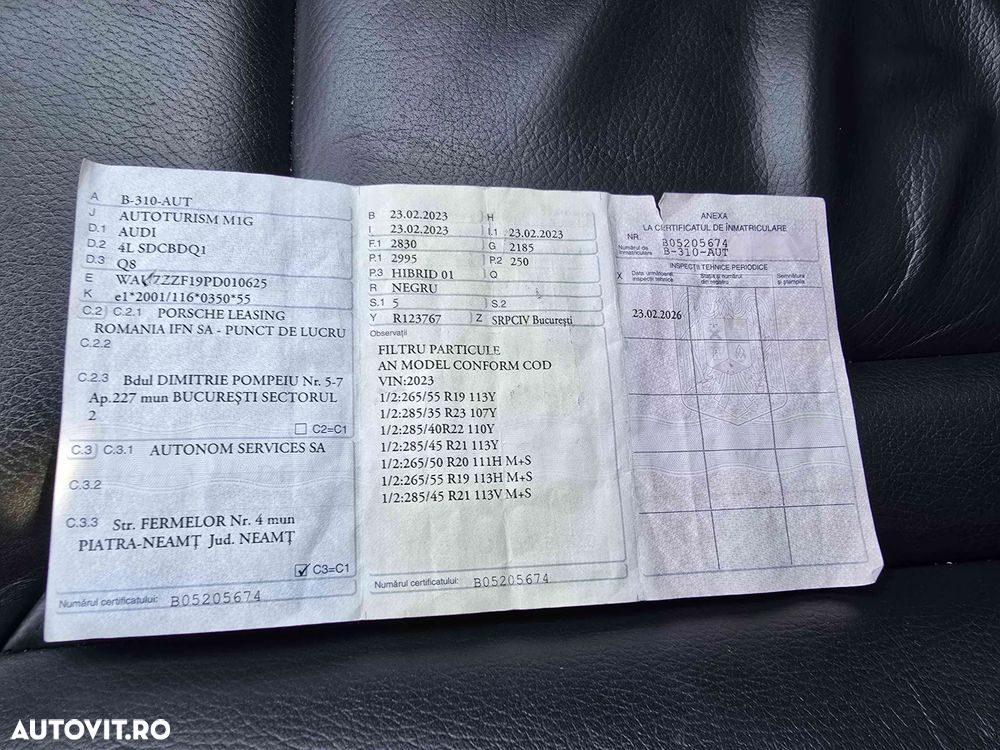 A B-310-AUT
J AUTOTURISM M1G
D.1 AUDI
D.2 4L SDCBDQ1
D.3 Q8
E WAUZZZF19PD010625
K e1*2001/116*0350*55
C.2 C.2.1 PORSCHE LEASING
ROMANIA IFN SA - PUNCT DE LUCRU
C.2.2
C.2.3 Bdul DIMITRIE POMPEIU Nr. 5-7
Ap.227 mun BUCUREȘTI SECTORUL
2
C2=C1
C.3 C.3.1 AUTONOM SERVICES SA
C.3.2
C.3.3 Str. FERMELOR Nr. 4 mun
PIATRA-NEAMȚ Jud. NEAMȚ
C3=C1
Numărul certificatului: B05205674
B 23.02.2023 H
I 23.02.2023 I.1 23.02.2023
F.1 2830 G 2185
P.1 2995 P.2 250
P.3 HIBRID 01 Q
R NEGRU
S.1 5 S.2
Y R123767 Z SRPCIV București
Observații
FILTRU PARTICULE
AN MODEL CONFORM COD
VIN:2023
1/2:265/55 R19 113Y
1/2:285/35 R23 107Y
1/2:285/40R22 110Y
1/2:285/45 R21 113Y
1/2:265/50 R20 111H M+S
1/2:265/55 R19 113H M+S
1/2:285/45 R21 113V M+S
Numărul certificatului: B05205674
ANEXA
LA CERTIFICATUL DE ÎNMATRICULARE
NR. B05205674
Numărul de înmatriculare B-310-AUT
INSPECȚII TEHNICE PERIODICE
X Data următoarei inspecții tehnice Stația și numărul din registru Semnătura și ștampila
23.02.2026
AUTOVIT.RO